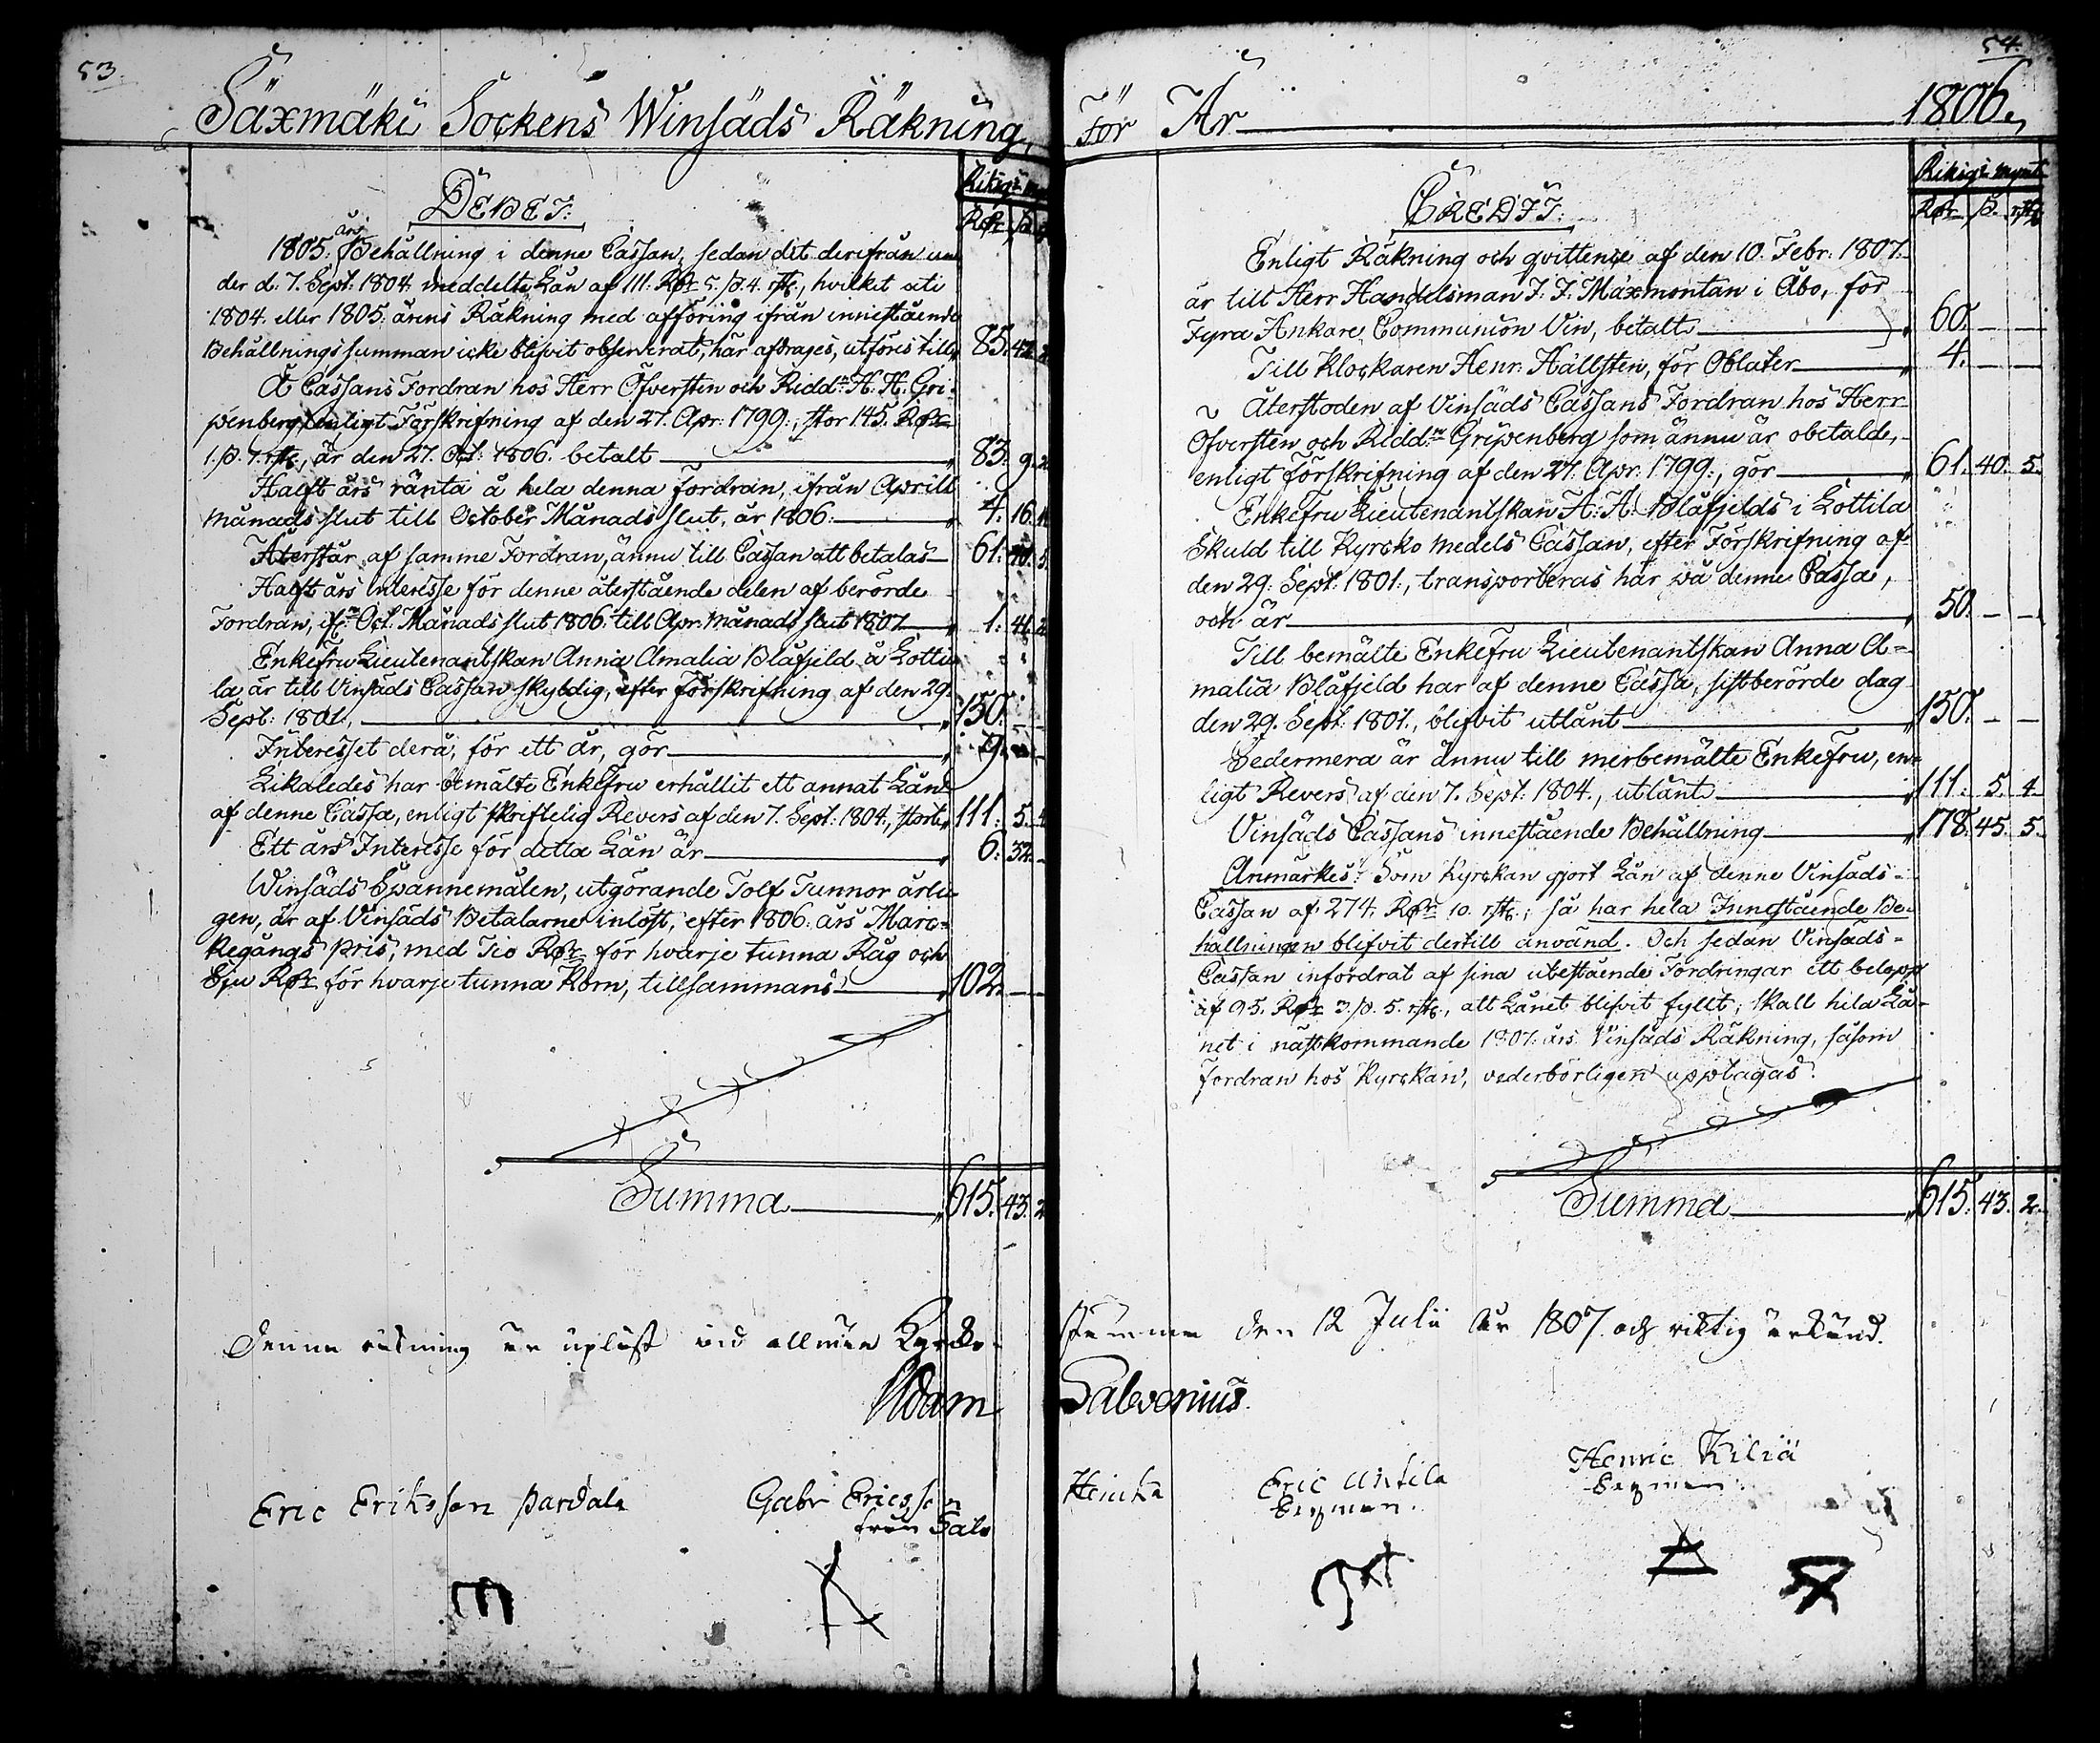 53.
Säxmäki Sockens Winsäds Räkning,
DEBET:
Riksg:s my
Rdr ß.
1805. års Behållning i denne Cassan, sedan det derifrån un
der d. 7. Sept: 1804. meddelte Lån af 111. Rdr 5. ß. 4. rst., hvilket uti
1804. eller 1805. årens Räkning med afföring ifrån inneståendе
Behållnings summan icke blifvit observerat, här afdrages, utföres till 85. 42. 2
Å Cassans Fordran hos Herr Öfversten och Ridd:n H: H. Gri-
penberg, enligt Förskrifning af den 27. Apr: 1799., stor 145. Rdr
1. ß. 7. rst., är den 27. Oct: 1806. betalt 83. 9. 2
Halft års ränta å hela denna fordran, ifrån Aprill
månads slut till October Månads slut, år 1806. 4. 16.
Återstår af samme Fordran, ännu till Cassan att betalas 61. 40. 5.
Halft års interesse för denne återstående delen af berörde
Fordran, ifr:n Oct: Månads slut 1806. till Apr: månads slut 1807. 1. 41. 2
Enkefru Lieutenantskan Anna Amalia Blåfjeld å Lotti
la är till Vinsäds Cassan skyldig, efter förskrifning af den 29.
Sept: 1801., 150.
Interesset derå, för ett år, gör 9.
Likaledes har bemälte Enkefru erhållit ett annat Lån
af denne Cassa, enligt skriftelig Revers af den 7. Sept: 1804., stort 111. 5. 4
Ett års Interesse för detta Lån är 6. 32.
Winsäds Spannemålen, utgörande Tolf Tunnor årli-
gen, är af Vinsäds Betalarne inlöst, efter 1806. års Marc-
kegångs pris, med Tio Rdr för hvarje tunna Råg och
Sju Rdr för hvarje tunna Korn, tillsammans 102.
Summa 615. 43. 2
Denne räkning är upläst vid allmän Kyrko-
Adam
Eric Eriksson pardala
Gabr Ericsson
från Salo
54.
För År 1806.,
CREDIT:
Riksg:s mynt
Rdr ß. rst
Enligt Räkning och qvittence af den 10. Febr: 1807.
är till Herr Handelsman J. J. Maxmontan i Åbo, för
Fyra Ankare Communion Vin, betalt 60. — —
Till Klockaren Henr. Hällsten, för Oblater 4. — —
Återstoden af Vinsäds Cassans Fordran hos Herr
Öfversten och Ridd:n Gripenberg som ännu är obetald,
enligt förskrifning af den 27. Apr: 1799., gör 61. 40. 5.
Enkefru Lieutenantskan A: A: Blåfjelds i Lottila
Skuld till Kyrcko Medels Cassan, efter Förskrifning af
den 29. Sept: 1801., transporteras här på denne Cassa,
och är 50. — —
Till bemälte Enkefru Lieutenantskan Anna A-
malia Blåfjeld har af denne Cassa, sistberörde dag
den 29. Sept: 1801., blifvit utlånt 150. — —
Sedermera är ännu till merbemälte Enkefru, en-
ligt Revers af den 7. Sept: 1804., utlånt 111. 5. 4.
Vinsäds Cassans innestående Behållning 178. 45. 5.
Anmärkes: Som Kyrckan gjort Lån af denne Vinsäds-
Cassan af 274. Rdr 10. rst.; så har hela Innestående Be-
hållningen blifvit dertill använd. Och sedan Vinsäds-
Cassan infordrat af sina utestående Fordringar ett belopp
af 95. Rdr 3. ß. 5. rst., att Lånet blifvit fyllt; skall hela Lå-
net i nästkommande 1807. års Vinsäds Räkning, såsom
fordran hos Kyrckan, vederbörligen upptagas.
Summa 615. 43. 2.
stämma den 12 Julii år 1807. och riktig erkänd.
Salvenius.
Heickä
Eric Untila
Sexman.
Henric Kiliä
Sexman.